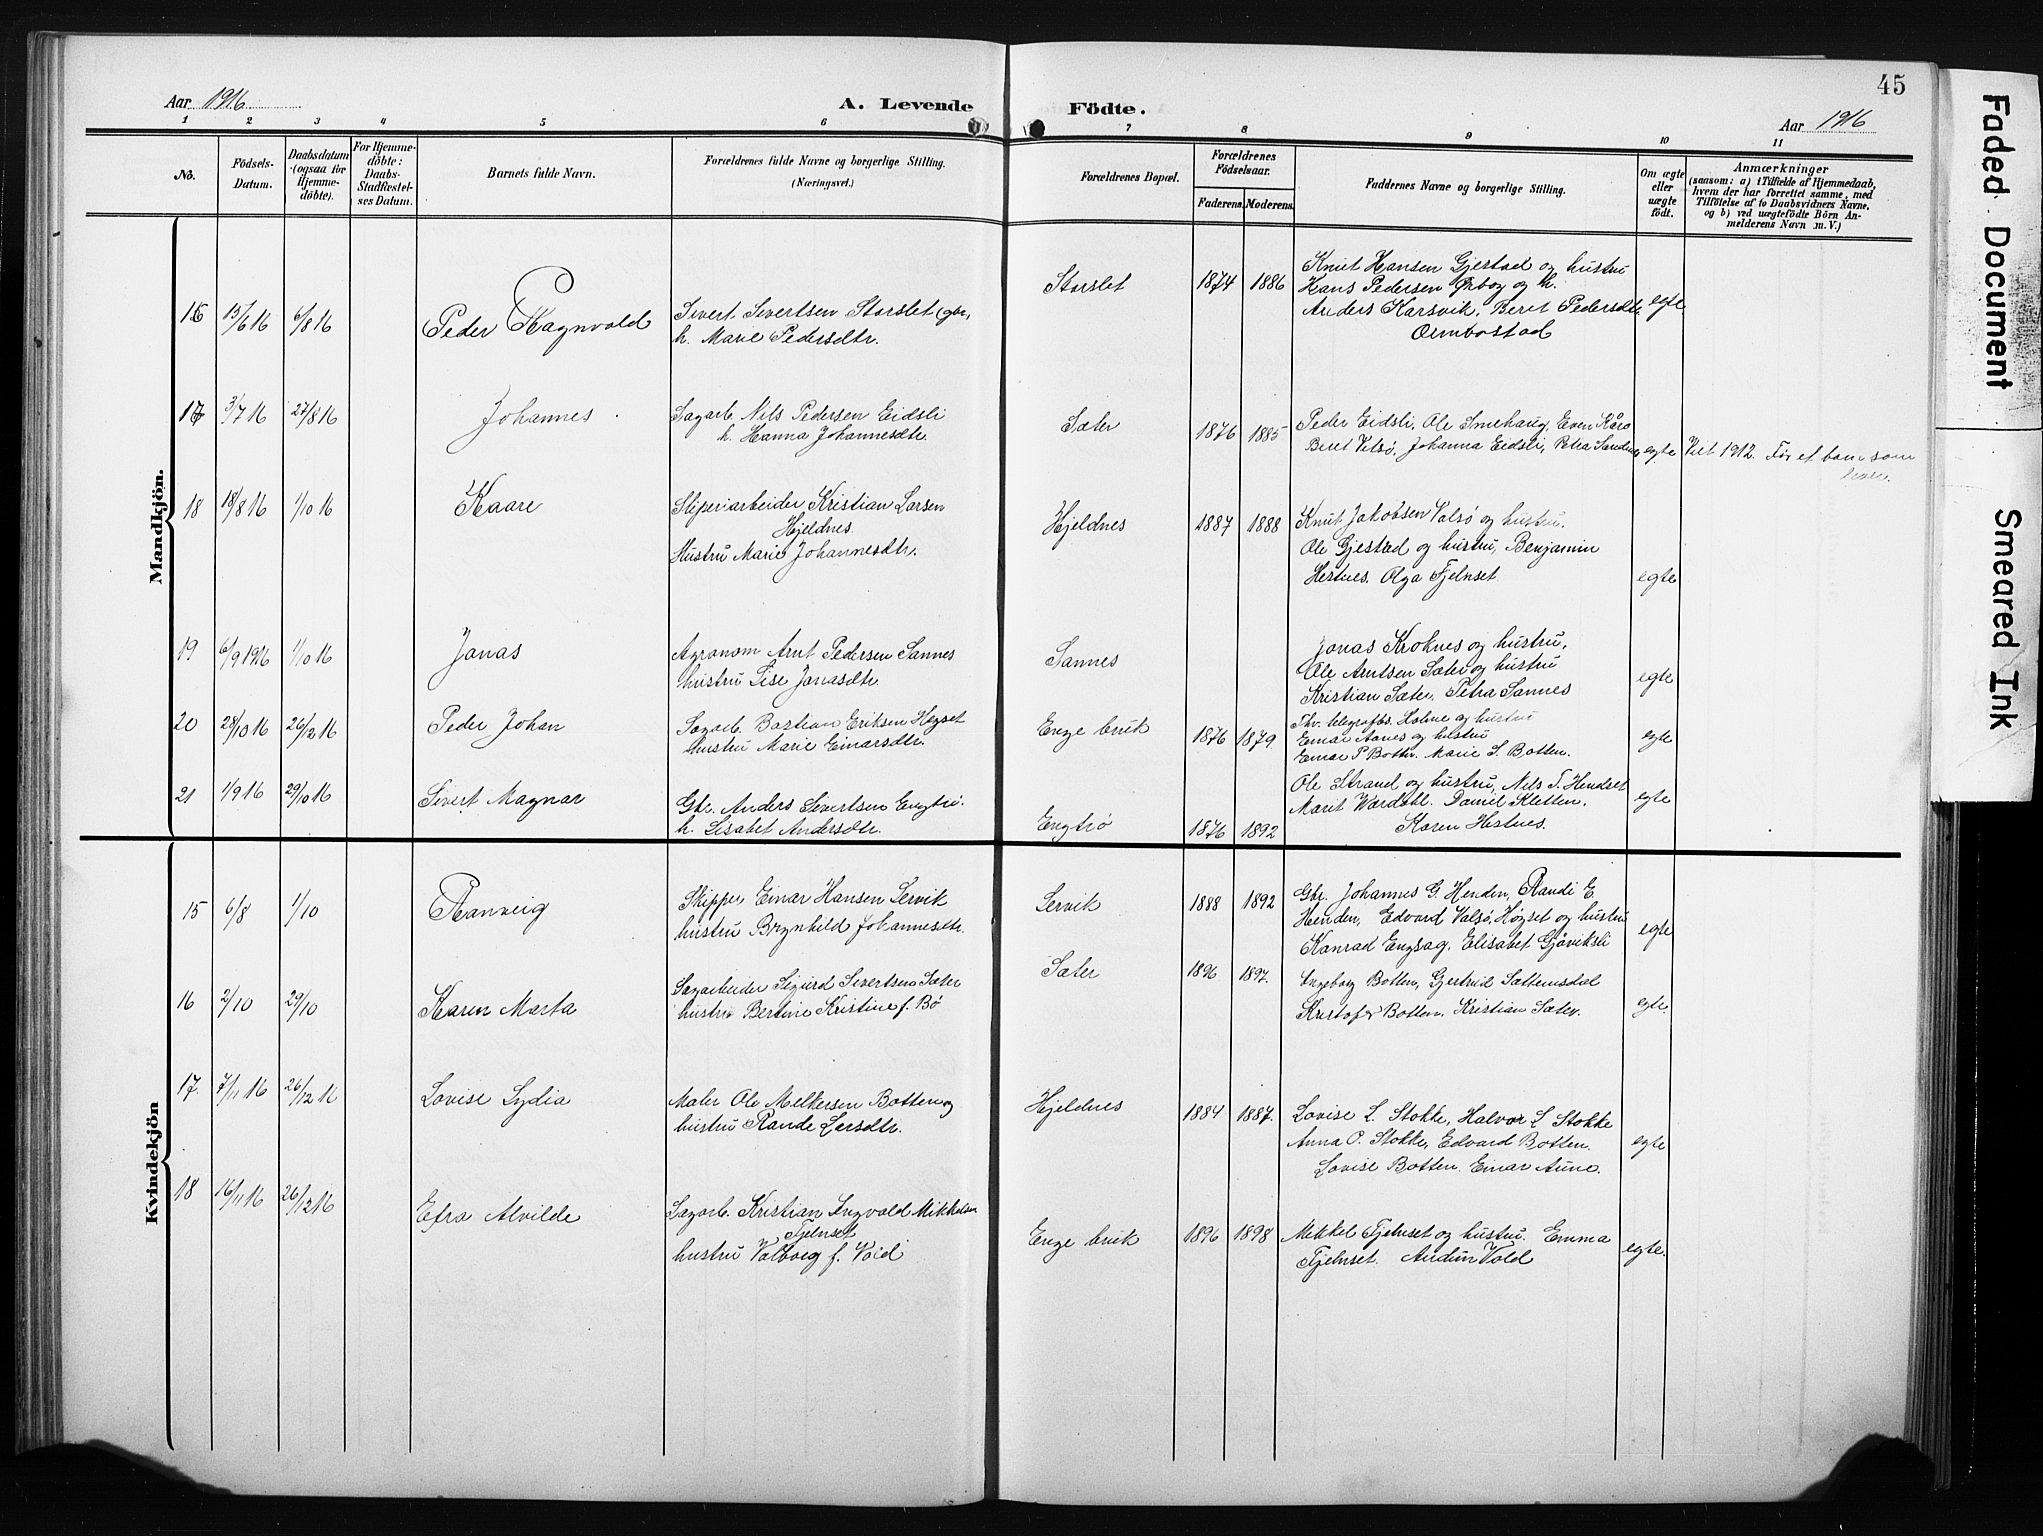 Aar 1916
A. Levende
Födte.
45
Aar 1916
1 2 3 4 5 6 7 8 9 10 11
No.
Födsels-Datum.
Daabsdatum (ogsaa for Hjemme-döbte).
For Hjemme-döbte: Daabs-Stadfæstel-ses Datum.
Barnets fulde Navn.
Forældrenes fulde Navne og borgerlige Stilling.
(Næringsvei.)
Forældrenes Bopæl.
Forældrenes Födselsaar.
Faderens. Moderens.
Faddernes Navne og borgerlige Stilling.
Om ægte eller uægte födt.
Anmærkninger
(saasom: a) i Tilfælde af Hjemmedaab,
hvem der har forrettet samme, med
Tilföielse af to Daabsvidners Navne,
og b) ved uægtefödte Börn An-
melderens Navn m. V.)
Mandkjön.
16 15/6 16 6/8 16 Peder Ragnvald
Sivert Sivertsen Storslet (gbr,
h. Marie Pedersdtr.
Storslet 1874 1886
Knut Hansen Gjestad og hustru
Hans Pedersen Ørbog og h.
Anders Karsvik, Beret Pedersdtr
Ormbostad
egte
17 3/7 16 27/8 16 Johannes
Sagarb. Nils Pedersen Eidsli
h. Hanna Johannesdtr.
Sæter 1876 1885
Peder Eidsli, Ole Smehaug, Even Kårø
Beret Vilsø, Johanna Eidsli, Petra Sandnes
egte
Viet 1912. Før et barn som
lever.
18 18/8 16 1/10 16 Kaare
Sliperiarbeider Kristian Larsen
Hjeldnes
Hustru Marie Johannesdtr.
Hjeldnes 1887 1888
Knut Jakobsen Valsø og hustru.
Ole Gjestad og hustru, Benjamin
Hestnes. Olga Fjelnset.
egte
19 6/9 1916 1/10 16 Jonas
Agronom Arnt Pedersen Sannes
hustru Lise Jonasdtr.
Sannes
Jonas Kroknes og hustru,
Ole Arntsen Sæter og hustru
Kristian Sæter, Petra Sannes
egte
20 28/10 16 26/12 16 Peder Johan
Sagarb. Bastian Eriksen Hegset
hustru Marie Einarsdtr.
Enge bruk 1876 1879
Thv. telegrafbs. Holme og hustru
Einar Aunes og hustru
Einar P Botten. Marie S. Botten.
egte
21 1/9 16 29/10 16 Sivert Magnar
Gbr. Anders Sivertsen Engtrø.
h. Lisabet Andersdtr.
Engtrø 1876 1892
Ole Strand og hustru, Nils T. Hendset
Marit Wærdahl. Daniel Kletten.
Karen Hestnes.
egte
Kvindekjön
15 6/8 1/10 Ranveig
Skipper Einar Hansen Lervik
hustru Brynhild Johannesdtr.
Lervik 1888 1892
Gbr. Johannes G. Henden, Randi E.
Henden, Edvard Valsø, Høgset og hustru
Konrad Engsag, Elisabet Gjøviksli
egte
16 2/10 29/10 Karen Marta
Sagarbeider Sigurd Sivertsen Sæter
hustru Bertine Kristine f. Bø
Sæter 1896 1897.
Ingeborg Botten, Gjertrud Sættemsdal
Kristofer Botten. Kristian Sæter.
egte.
17. 7/11 16 26/12 16 Lovise Lydia
Maler Ole Melkersen Botten og
hustru Rande Larsdtr.
Hjeldnes 1884 1887.
Lovise L. Stokke, Halvor L Stokke
Anna O. Stokke, Edvard Botten.
Lovise Botten. Einar Aune.
egte
18 16/11 16 26/12 16 Efra Alvilde
Sagarb. Kristian Ingvald Mikkelsen
Fjelnset
hustru Valborg f. Vold
Enge bruk 1896 1898
Mikkel Fjelnset og hustru. Emma
Fjelnset. Audun Vold
egte.
Faded Document
Smeared Ink